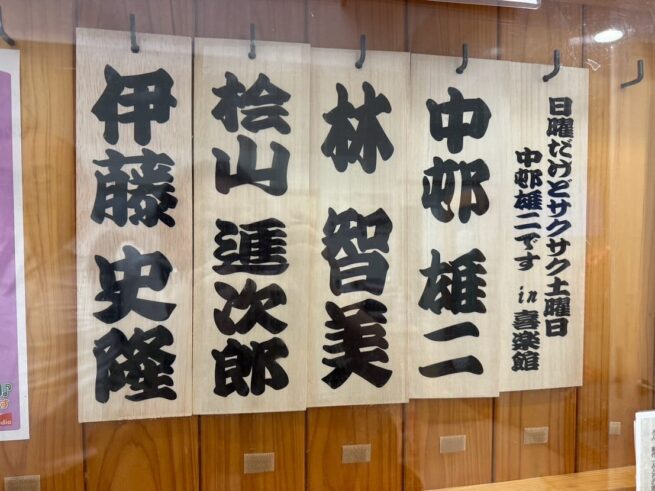 日曜だけどサクサク土曜日
中邨雄二です in 喜楽館
中邨 雄二
林 智美
桧山 進次郎
伊藤 史隆